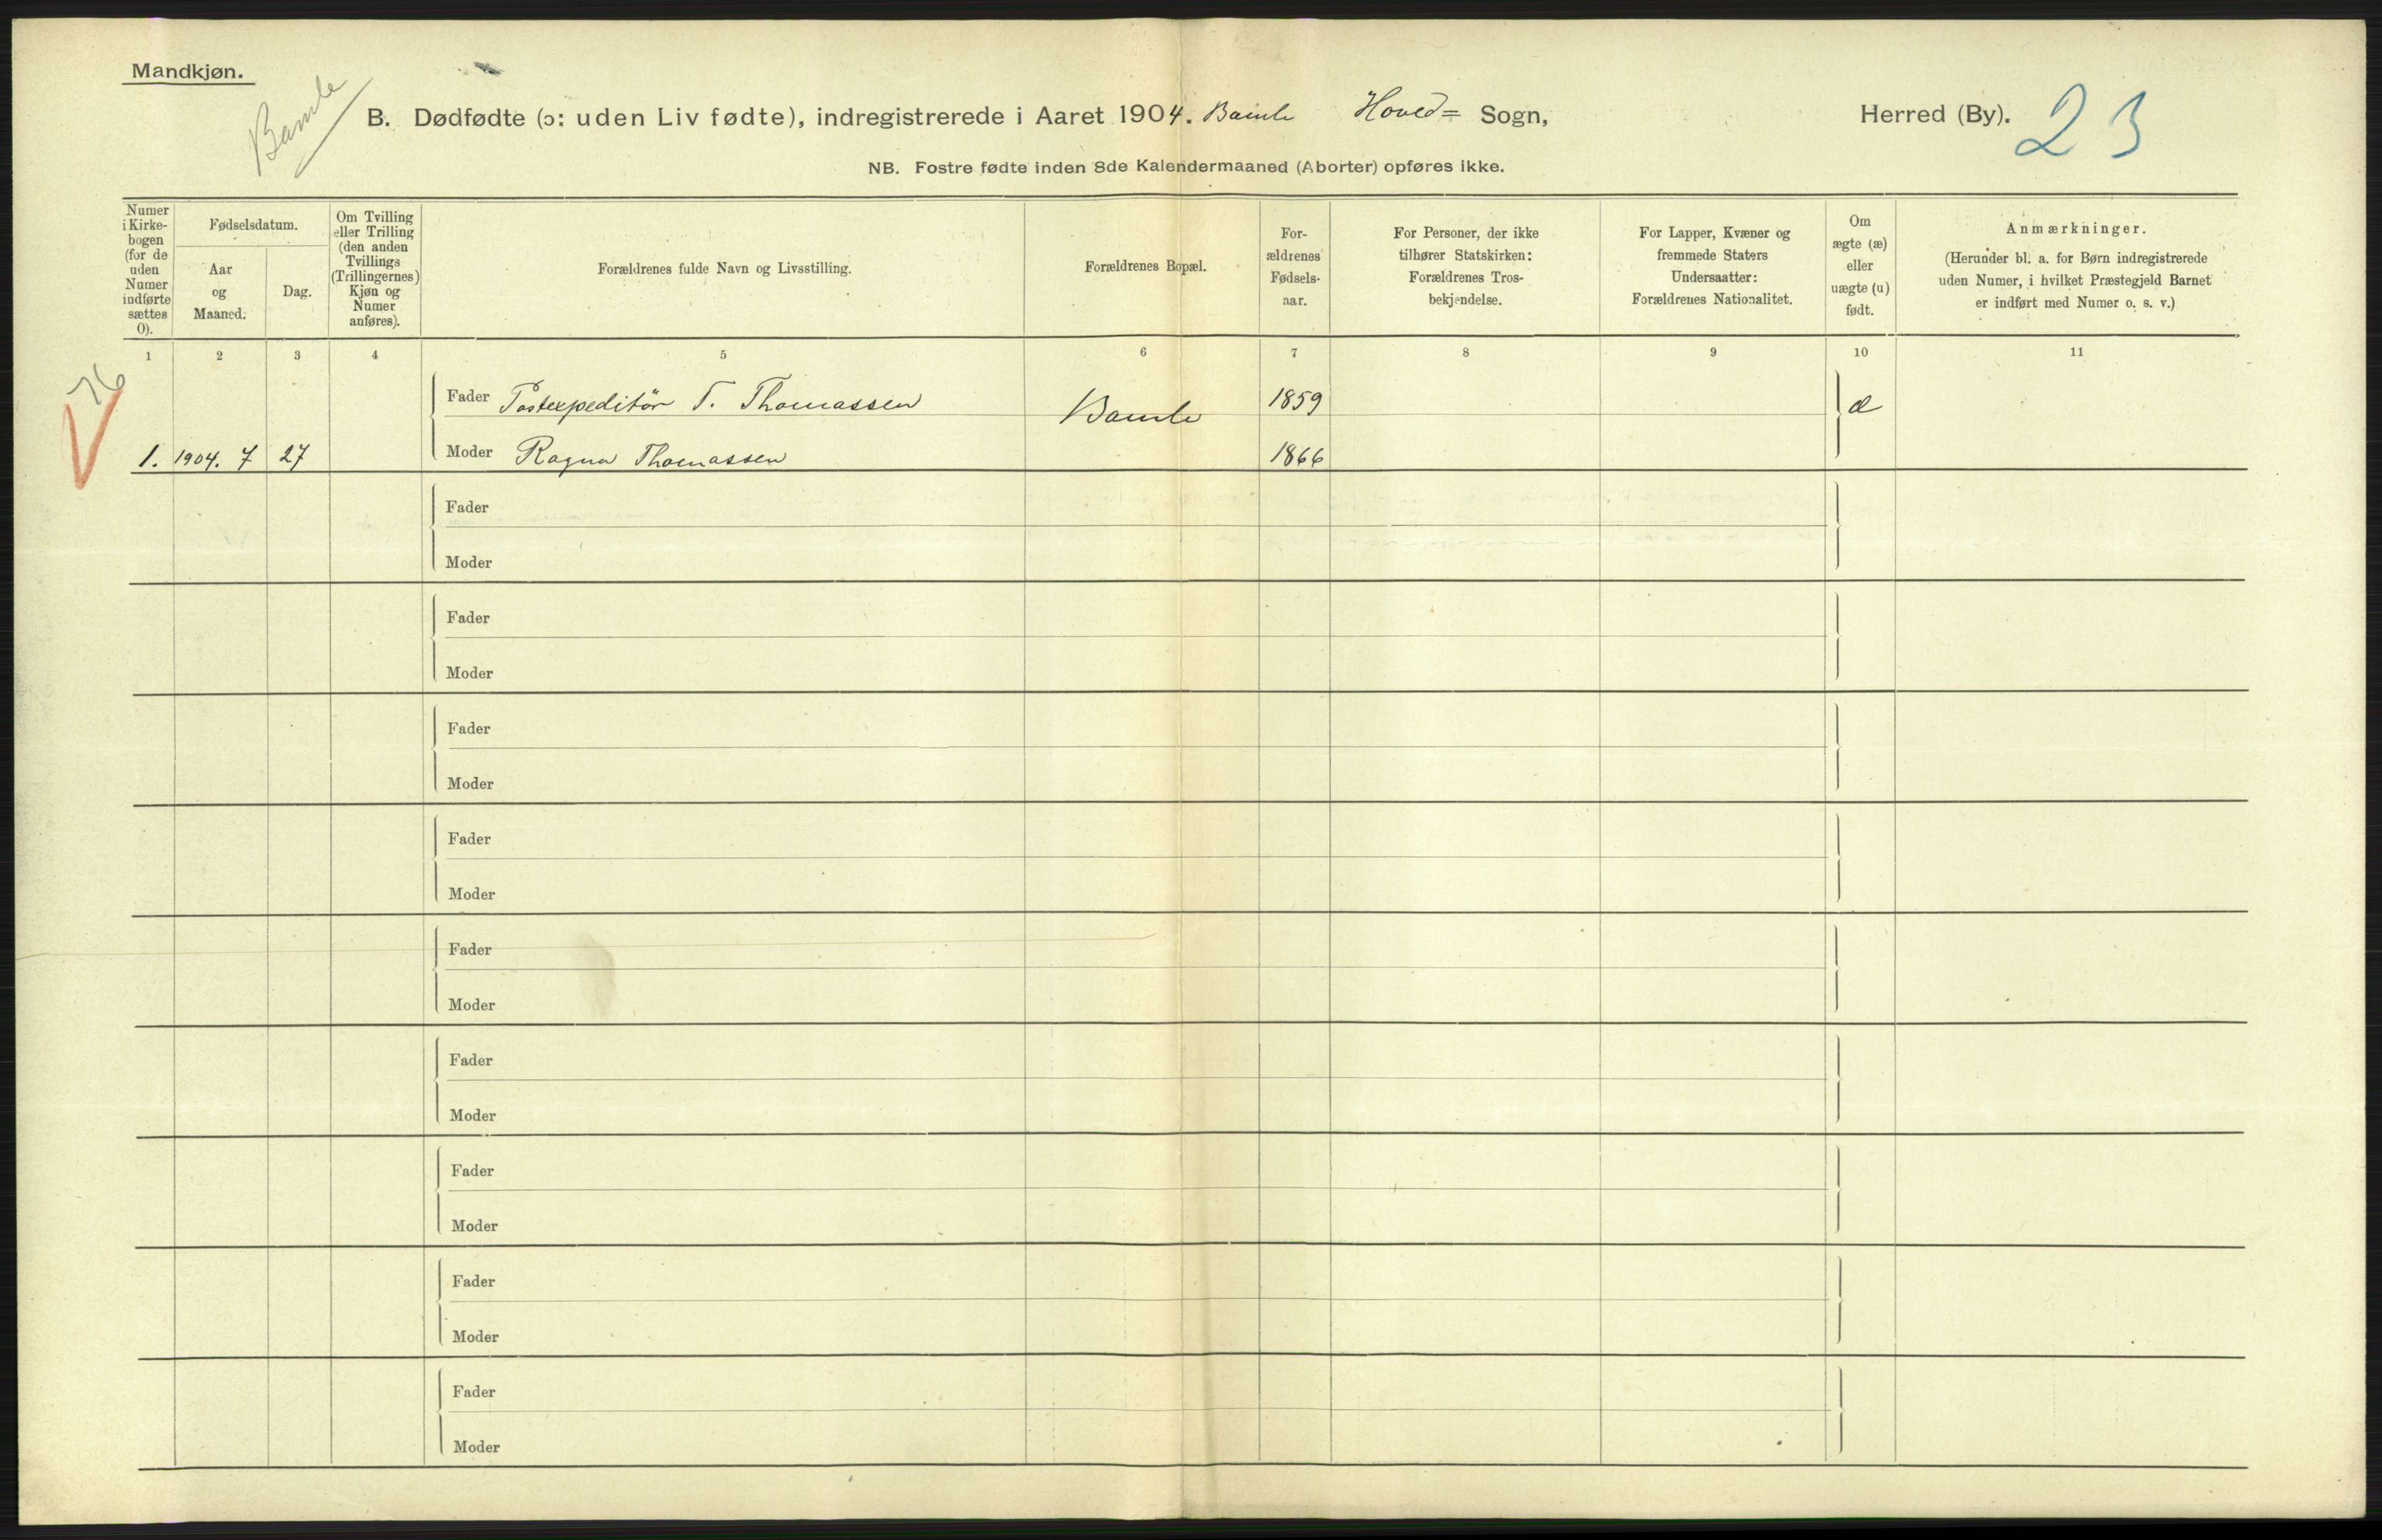 Mandkjøn.
Bamle
B. Dødfødte (ɔ: uden Liv fødte), indregistrerede i Aaret 1904. Bamle Hoved= Sogn, Herred (By). 23
NB. Fostre fødte inden 8de Kalendermaaned (Aborter) opføres ikke.
Numer
i Kirke-
bogen
(for de
uden
Numer
indførte
sættes
0).
Fødselsdatum.
Aar
og
Maaned.
Dag.
Om Tvilling
eller Trilling
(den anden
Tvillings
(Trillingernes)
Kjøn og
Numer
anføres).
Forældrenes fulde Navn og Livsstilling.
Forældrenes Bopæl.
For-
ældrenes
Fødsels-
aar.
For Personer, der ikke
tilhører Statskirken:
Forældrenes Tros-
bekjendelse.
For Lapper, Kvæner og
fremmede Staters
Undersaatter:
Forældrenes Nationalitet.
Om
ægte (æ)
eller
uægte (u)
født.
Anmærkninger.
(Herunder bl. a. for Børn indregistrerede
uden Numer, i hvilket Præstegjeld Barnet
er indført med Numer o. s. v.)
1 2 3 4 5 6 7 8 9 10 11
76
Fader Postexpeditör T. Thomassen Bamle 1859 æ
1. 1904. 7 27 Moder Ragna Thomassen 1866
Fader
Moder
Fader
Moder
Fader
Moder
Fader
Moder
Fader
Moder
Fader
Moder
Fader
Moder
Fader
Moder
Fader
Moder